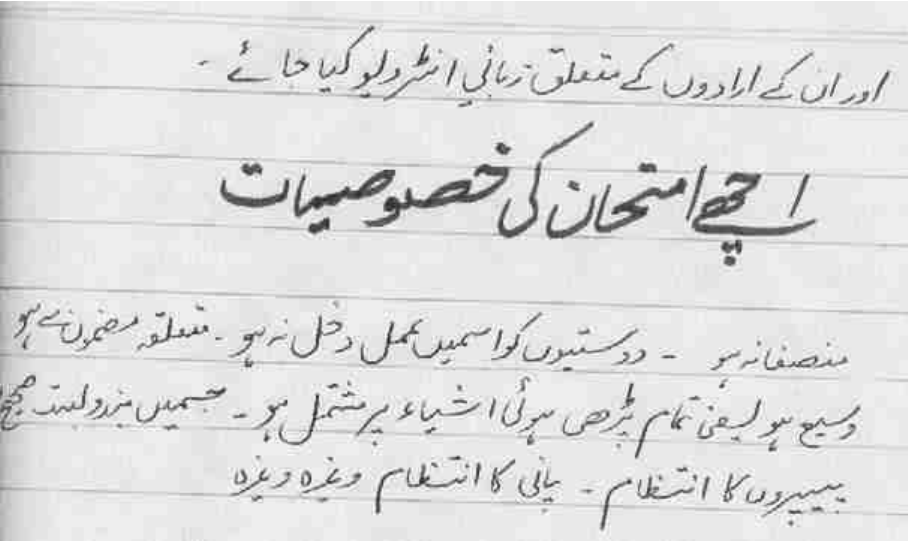 اور ان کے ارادوں کے متعلق زبانی انٹرویو کیا جائے ۔
اچھے امتحان کی خصوصیات
منصفانہ ہو ۔ دوستیوں کو اسمیں عمل دخل نہ ہو ۔ متعلقہ مضمون سے ہو
وسیع ہو یعنی تمام پڑھی ہوئی اشیاء پر مشتمل ہو ۔ جسمیں بندوبست صحیح
پیپروں کا انتظام ۔ پانی کا انتظام وغیرہ وغیرہ